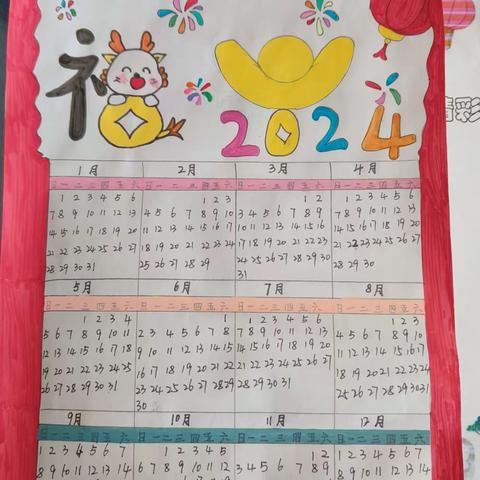 福
2024
彩
1月
日 一 二 三 四 五 六
1 2 3 4 5 6
7 8 9 10 11 12 13
14 15 16 17 18 19 20
21 22 23 24 25 26 27
28 29 30 31
2月
日 一 二 三 四 五 六
1 2 3
4 5 6 7 8 9 10
11 12 13 14 15 16 17
18 19 20 21 22 23 24
25 26 27 28 29
3月
日 一 二 三 四 五 六
1 2
3 4 5 6 7 8 9
10 11 12 13 14 15 16
17 18 19 20 21 22 23
24 25 26 27 28 29 30
31
4月
日 一 二 三 四 五 六
1 2 3 4 5 6
7 8 9 10 11 12 13
14 15 16 17 18 19 20
21 22 23 24 25 26 27
28 29 30
5月
日 一 二 三 四 五 六
1 2 3 4
5 6 7 8 9 10 11
12 13 14 15 16 17 18
19 20 21 22 23 24 25
26 27 28 29 30 31
6月
日 一 二 三 四 五 六
1
2 3 4 5 6 7 8
9 10 11 12 13 14 15
16 17 18 19 20 21 22
23 24 25 26 27 28 29
30
7月
日 一 二 三 四 五 六
1 2 3 4 5 6
7 8 9 10 11 12 13
14 15 16 17 18 19 20
21 22 23 24 25 26 27
28 29 30 31
8月
日 一 二 三 四 五 六
1 2 3
4 5 6 7 8 9 10
11 12 13 14 15 16 17
18 19 20 21 22 23 24
25 26 27 28 29 30 31
9月
日 一 二 三 四 五 六
1 2 3 4 5 6 7
8 9 10 11 12 13 14
10月
日 一 二 三 四 五 六
1 2 3 4 5
6 7 8 9 10 11 12
11月
日 一 二 三 四 五 六
1 2
3 4 5 6 7 8 9
12月
日 一 二 三 四 五 六
1 2 3 4 5 6 7
8 9 10 11 12 13 14